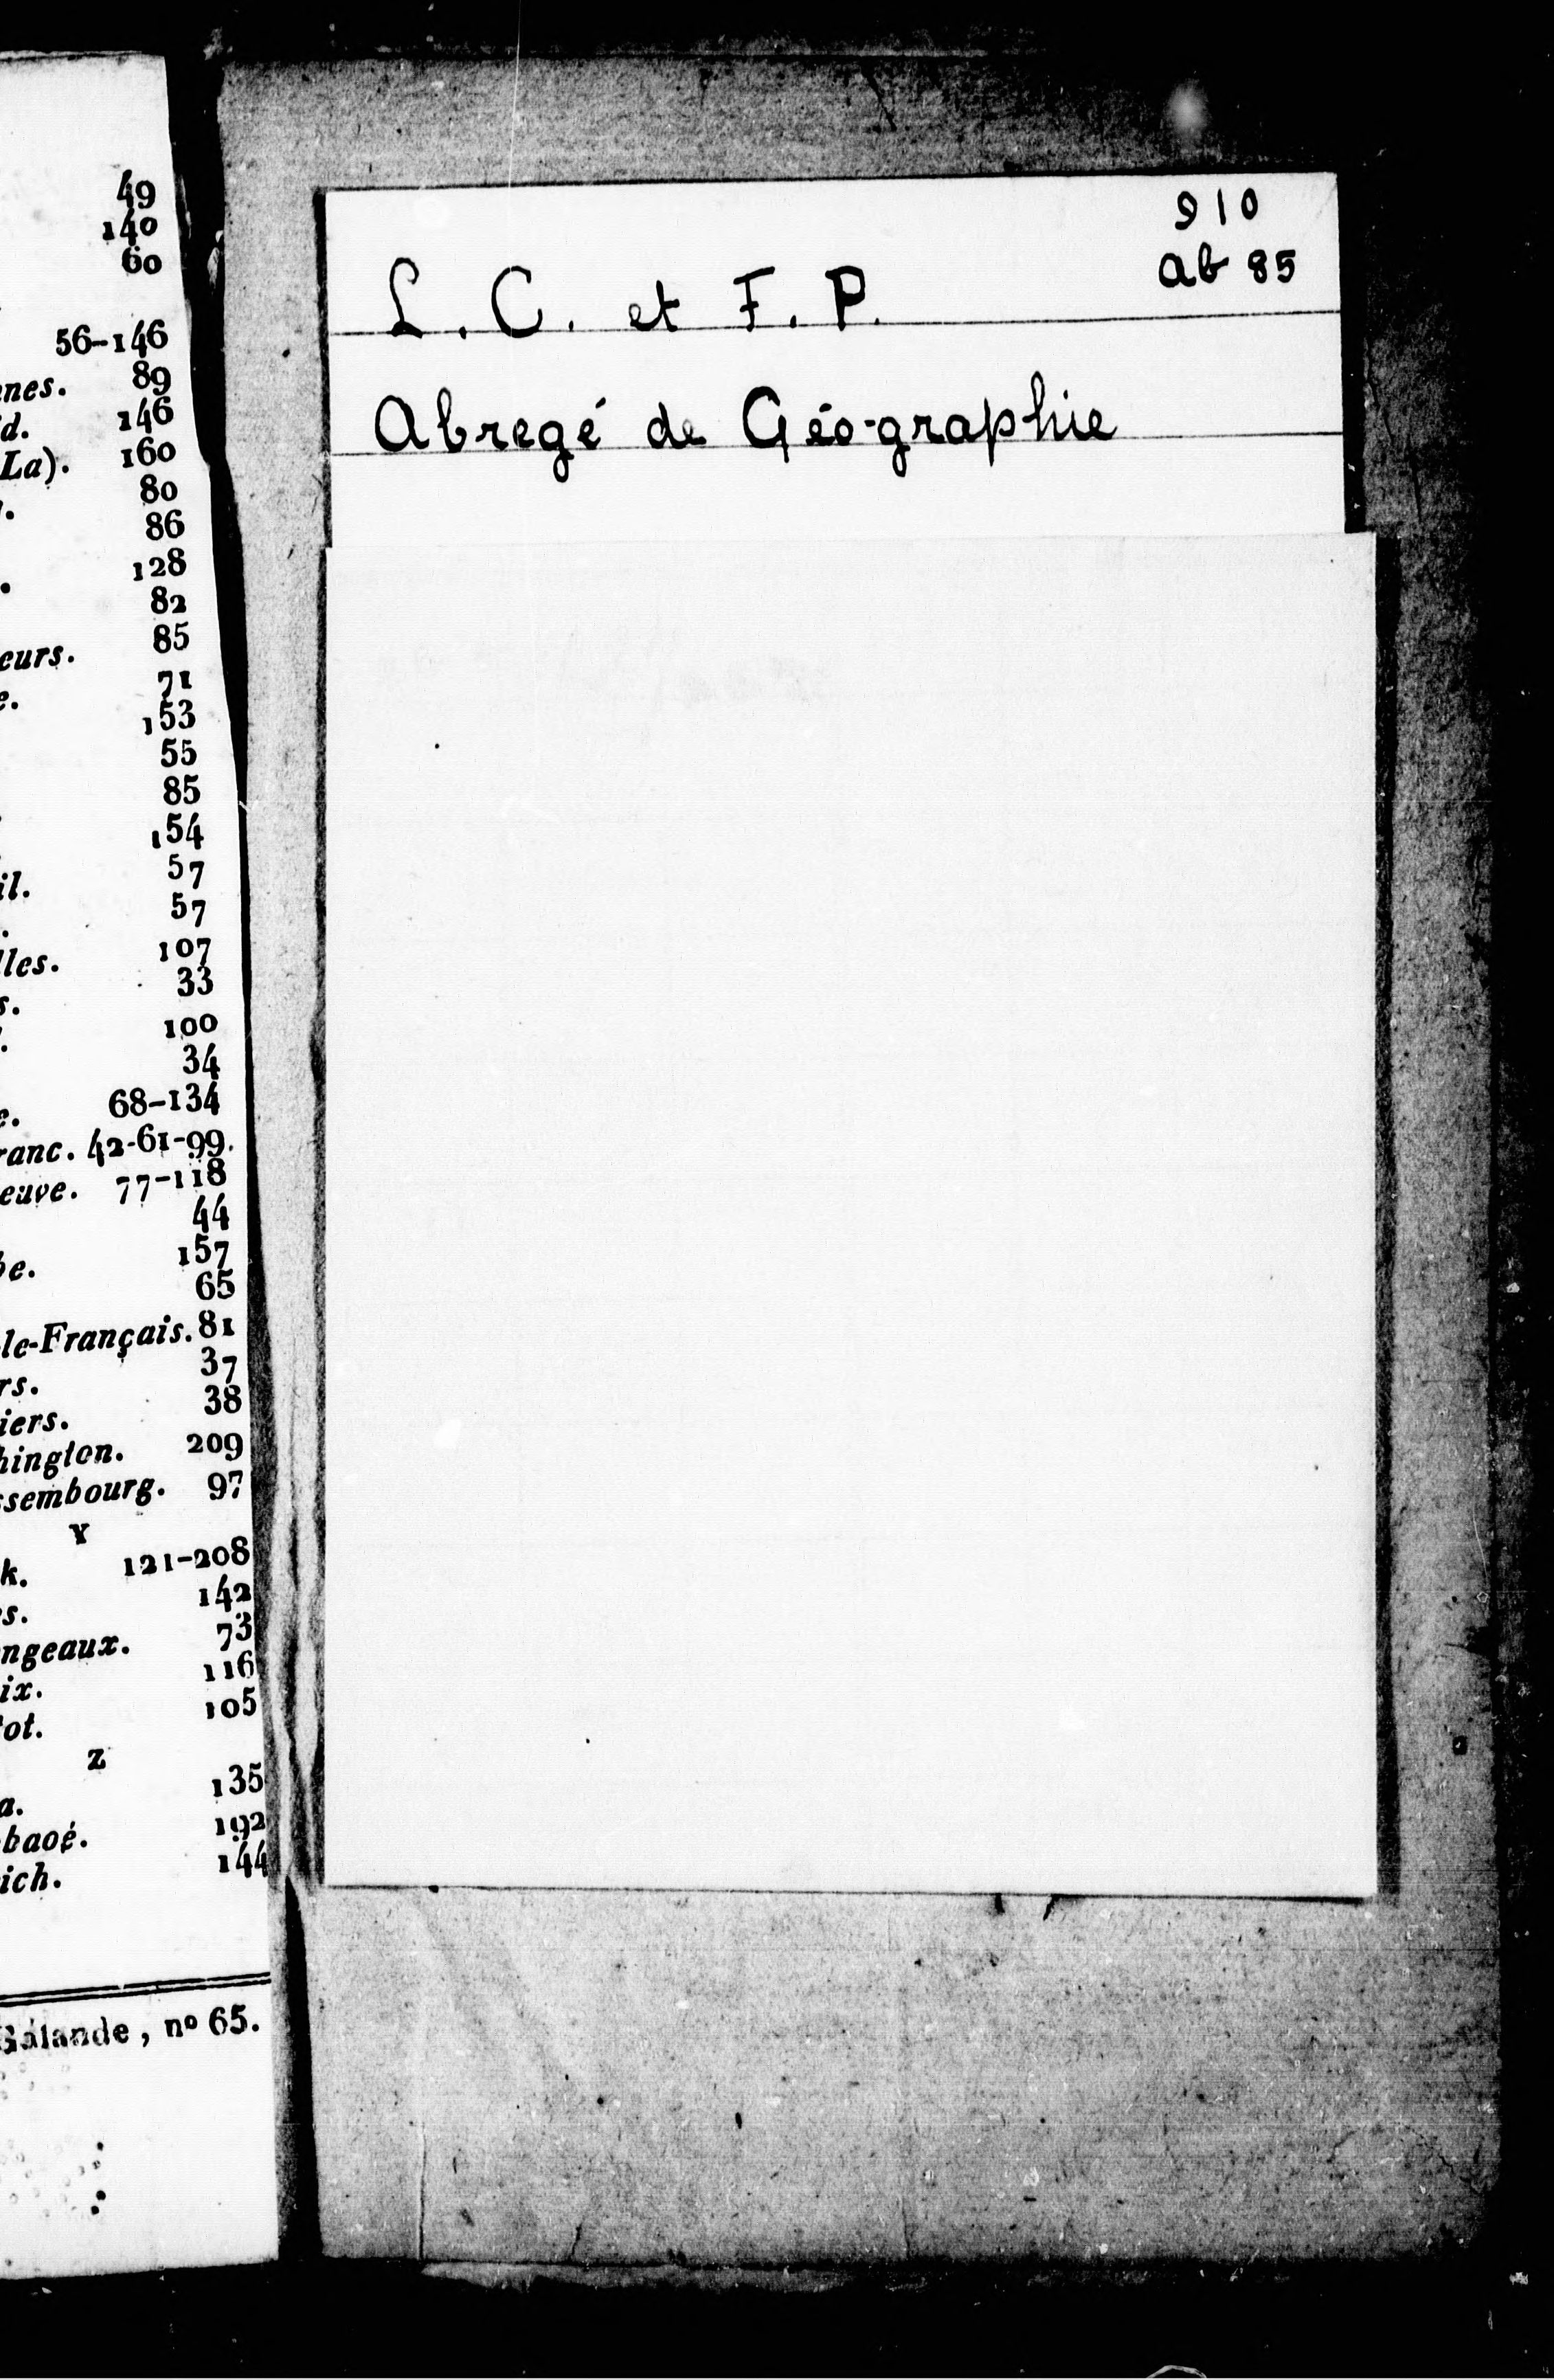 49
140
60
56-146
nes. 89
d. 146
La). 160
80
86
128
82
eurs. 85
e. 71
153
55
85
154
il. 57
57
lles. 107
s. 33
100
34
e. 68-134
ranc. 42-61-99.
euve. 77-118
44
be. 157
65
le-Français. 81
rs. 37
iers. 38
hington. 209
ssembourg. 97
Y
k. 121-208
s. 142
ngeaux. 73
ix. 116
ot. 105
Z
a. 135
baoé. 192
ich. 144
Galande, nº 65.
910
Ab 85
L. C. et F. P.
Abregé de Géo-graphie